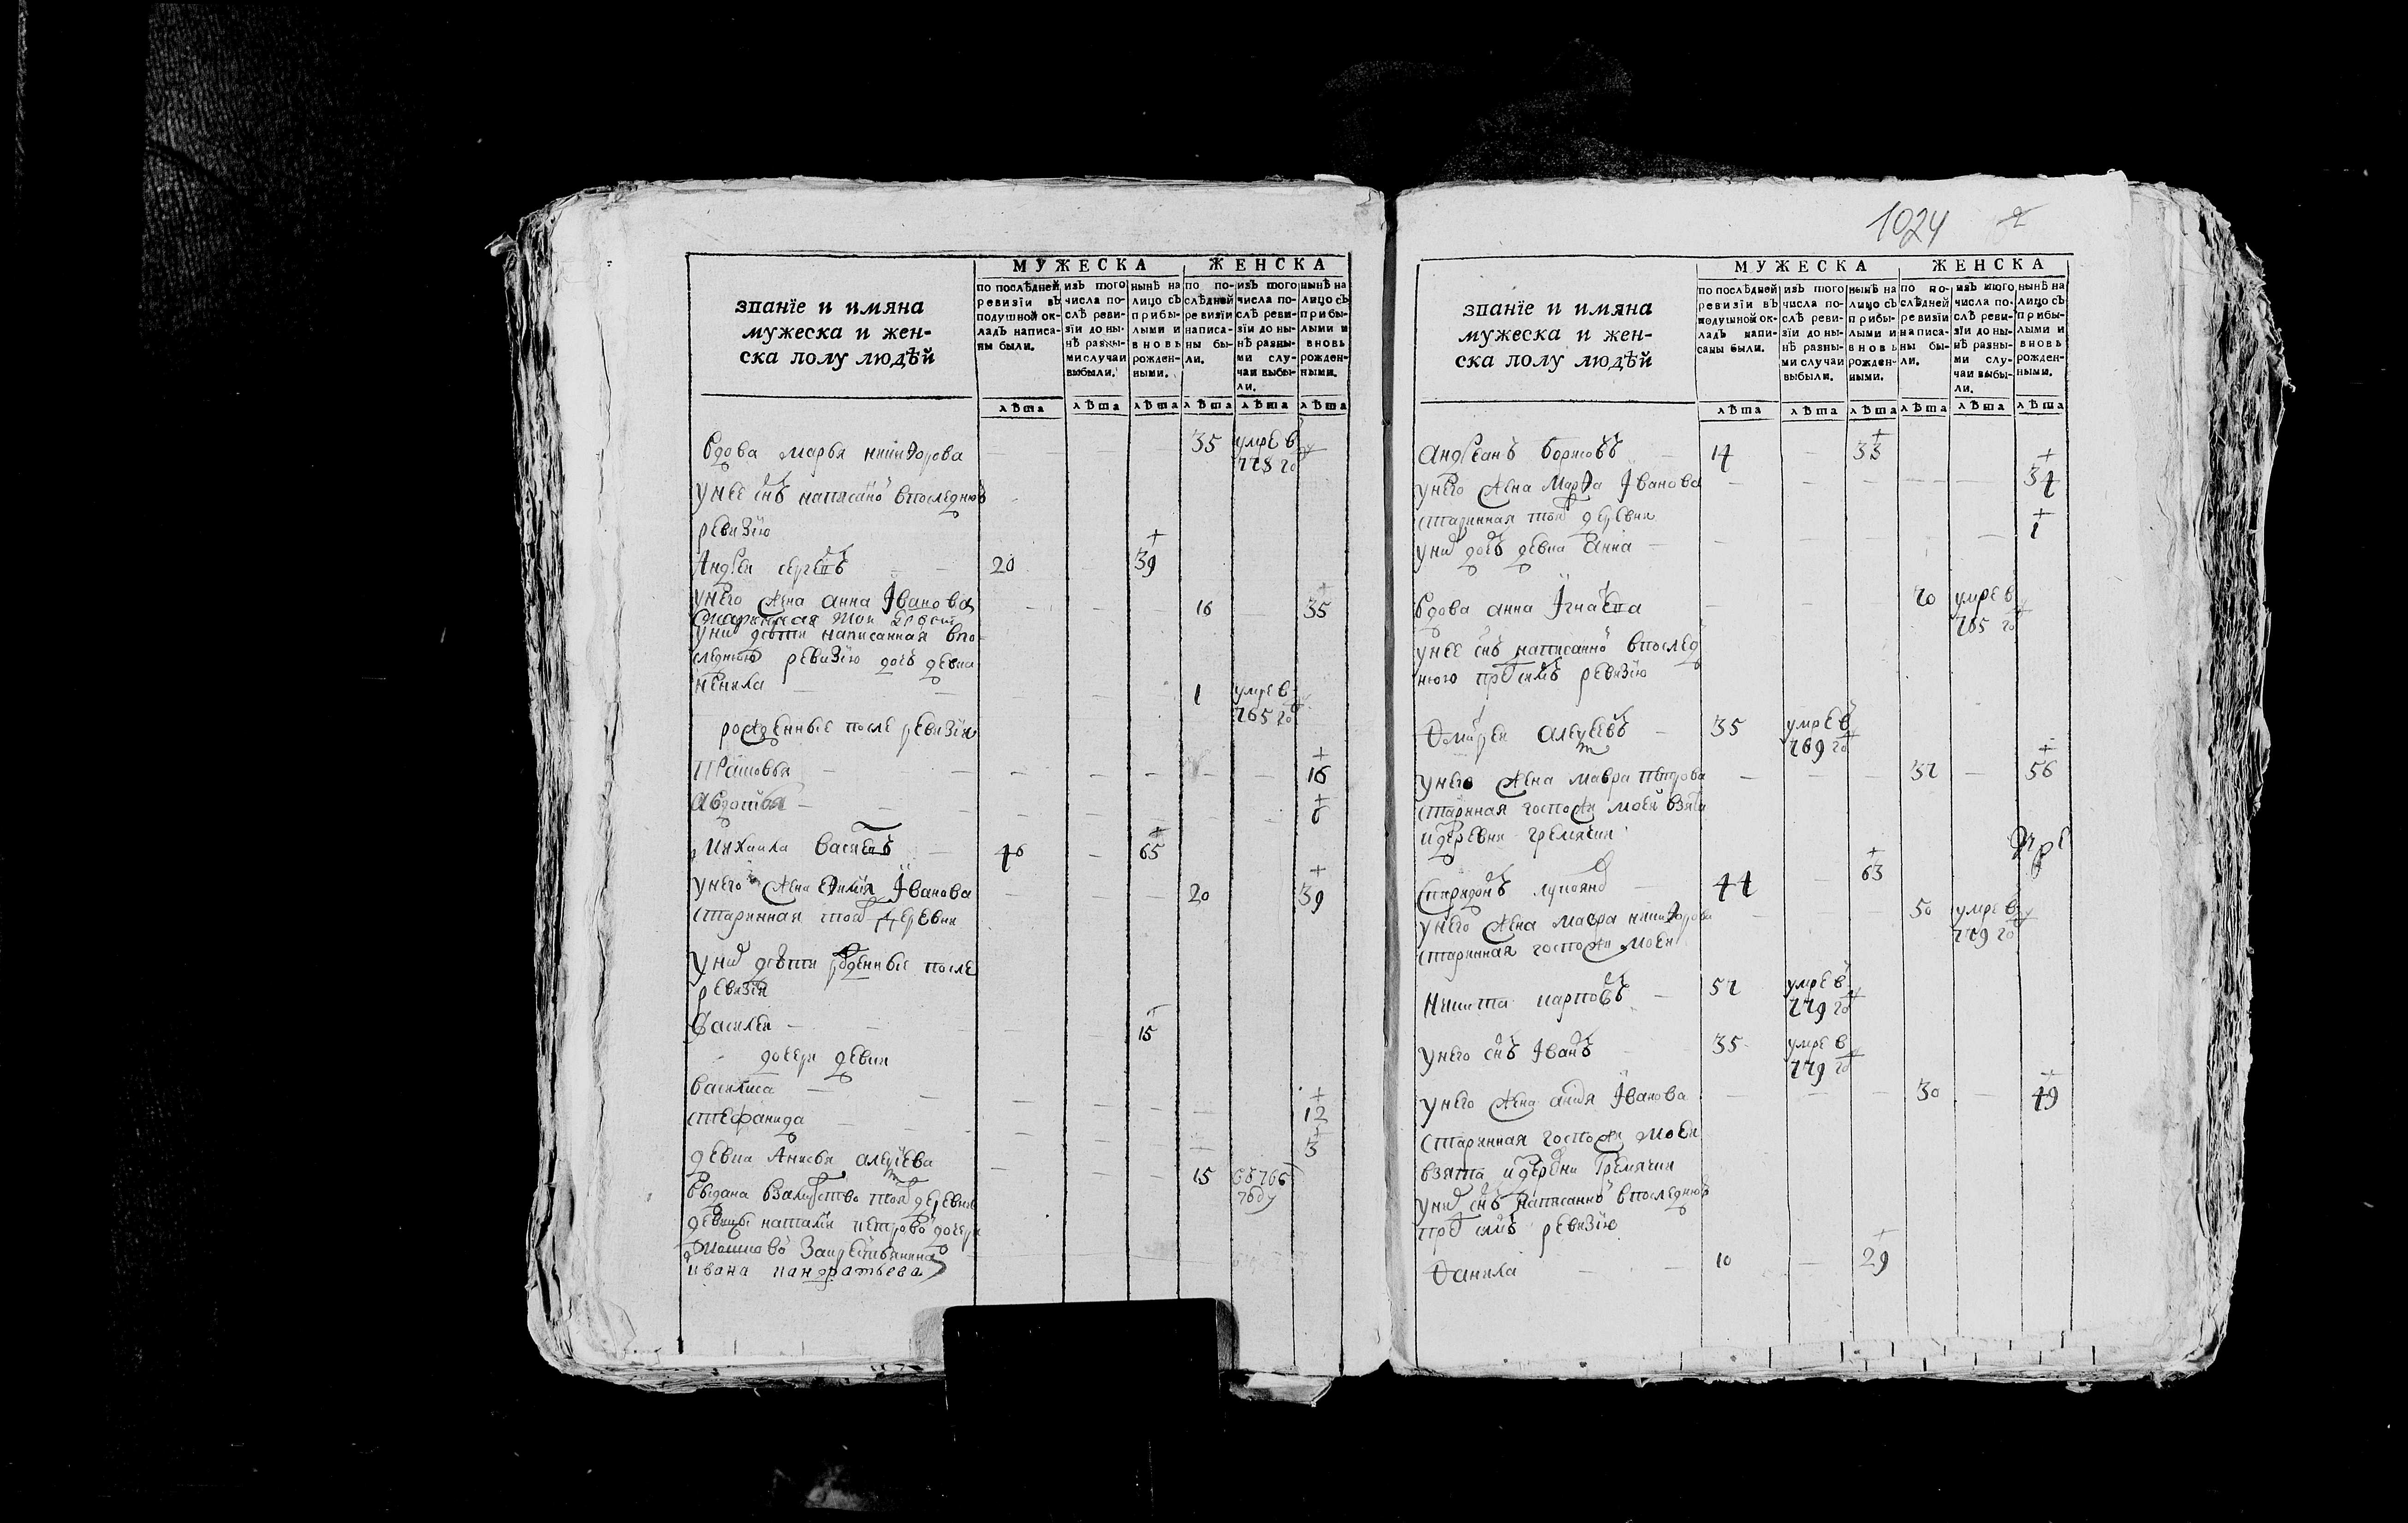 МУЖЕСКА ЖЕНСКА
званїе и имяна
мужеска и жен-
ска полу людѣй
по послѣдней
ревизїи въ
подушной ок-
ладъ написа-
ны были.
изъ того
числа по-
слѣ реви-
зїи до ны-
нѣ разны-
ми случаи
выбыли.
нынѣ на
лицо съ
прибы-
лыми и
вновь
рожден-
ными.
по по-
слѣдней
ревизїи
написа-
ны бы-
ли.
изъ того
числа по-
слѣ реви-
зїи до ны-
нѣ разны-
ми слу-
чаи выбы-
ли.
нынѣ на
лицо съ
прибы-
лыми и
вновь
рожден-
ными.
лѣта лѣта лѣта лѣта лѣта лѣта
вдова марья никифорова 35 умре в
778 го
унее снъ написано впоследнюю
ревизїю
Андреи сергевъ 20 39
унего жена анна Iванова 16 35
старинная тои деревни
уних дѣти написанная впо
следнюю ревизїю доч девка
ненила 1 умре в
765 го
рожденные после ревизїи
прасковья 16
авдотья 8
михаила василевъ 46 65
унего жена Iванова 20 39
старинная тои деревни
уних дѣти рожденные после
ревизїи
василеи 15
дочери девки
василиса 12
стефанида 3
девка алексеева 15 въ 766
году
выдана взамужство тои деревни
девицы наталїи петровой дочери
закрестьянина
ивана панкратьева
1024 2
МУЖЕСКА ЖЕНСКА
званїе и имяна
мужеска и жен-
ска полу людѣй
по послѣдней
ревизїи въ
подушной ок-
ладъ напи-
саны были.
изъ того
числа по-
слѣ реви-
зїи до ны-
нѣ разны-
ми случаи
выбыли.
нынѣ на
лицо съ
прибы-
лыми и
вновь
рожден-
ными.
по по-
слѣдней
ревизїи
написа-
ны бы-
ли.
изъ того
числа по-
слѣ реви-
зїи до ны-
нѣ разны-
ми слу-
чаи выбы-
ли.
нынѣ на
лицо съ
прибы-
лыми и
вновь
рожден-
ными.
лѣта лѣта лѣта лѣта лѣта лѣта
андреанъ борисовъ 14 33
унего жена марфа Iванова 34
старинная тои деревни
уних доч девка анна 1
вдова анна Iгнатева 70 умре в
765 го
унее снъ написанно впослед
нюю пред симъ ревизїю
дмитреи алексеевъ 35 умре в
769 го
унего жена мавра 37 56
старинная госпожи моеи взята
из деревни гремячки
спиридонъ лукоянов 44 63
унего жена мавра никифорова 50 умре в
779 го
старинная госпожи моеи
никита карповъ 57 умре в
779 го
унего снъ Iванъ 35 умре в
779 го
унего жена Iванова 30 49
старинная госпожи моеи
взята из деревни гремячки
уних снъ написанно впоследнюю
пред симъ ревизїю
данила 10 29